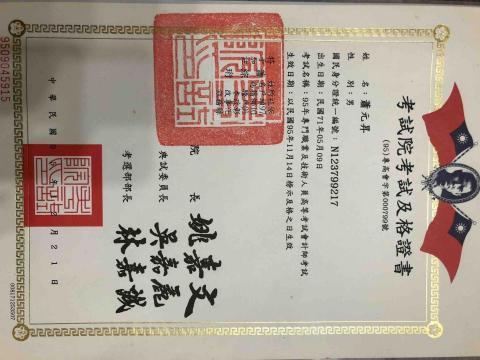 考試院考試及格證書
(95)專高會字第000799號
姓名：蕭元昇
性別：男
國民身分證統一編號：N123799217
出生日期：民國71年05月09日
考試名稱：95年專門職業及技術人員高等考試會計師考試
生效日期：以民國95年11月14日榜示及格之日生效
院長 姚嘉文
典試委員長 吳嘉麗
考選部部長 林嘉誠
中華民國
2月21日
9509045915